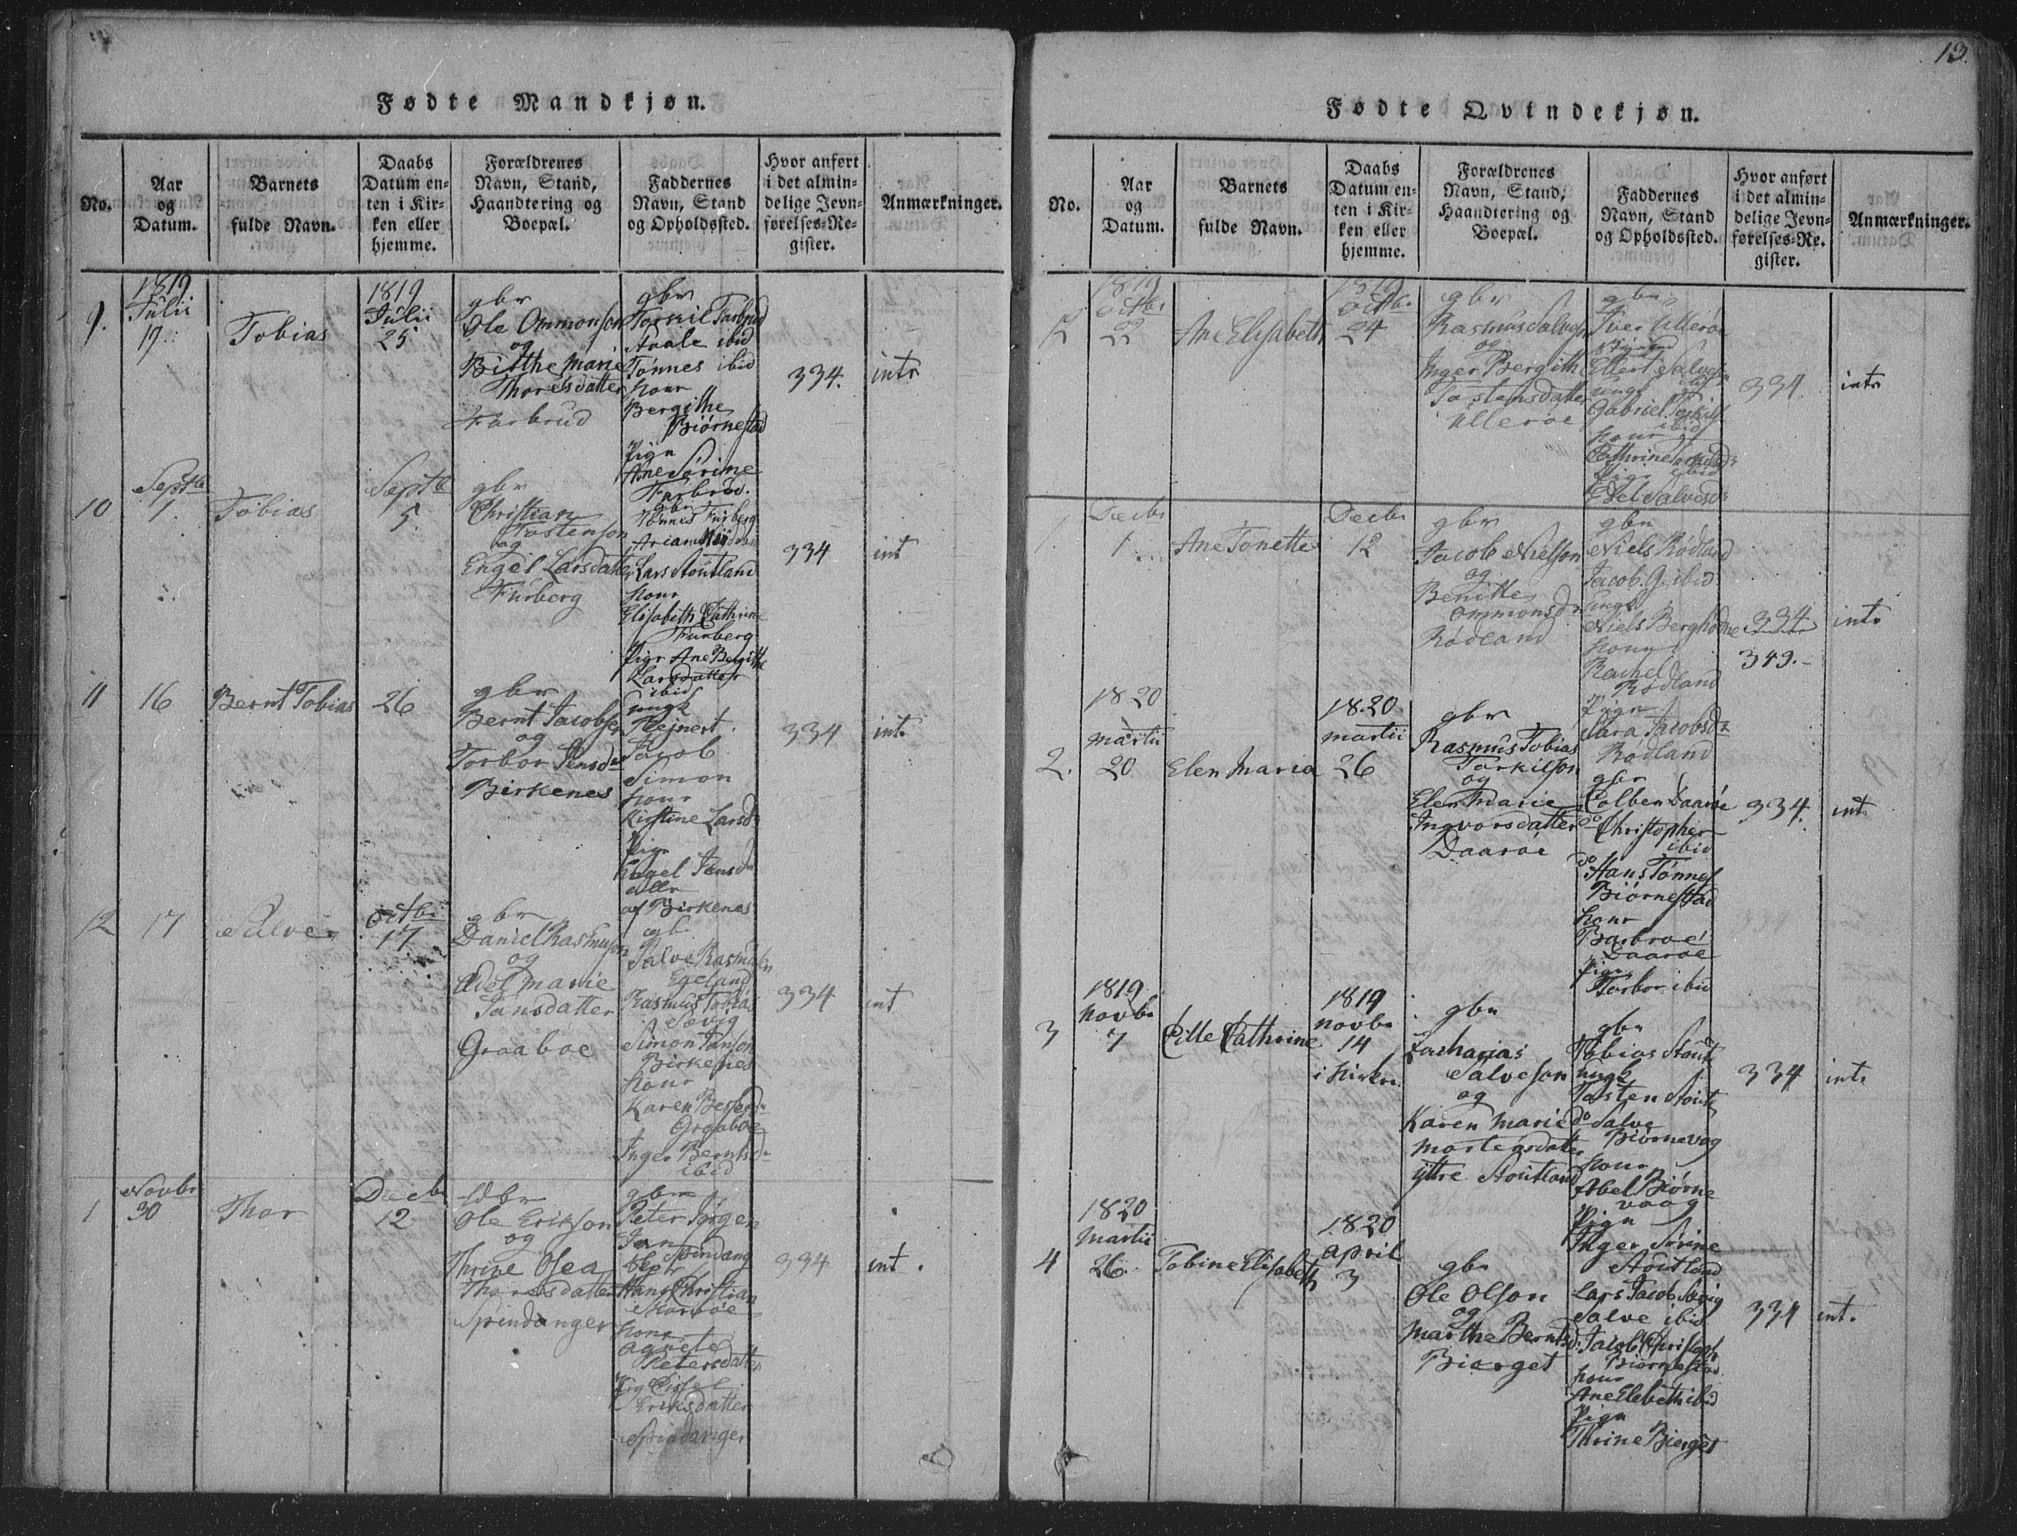 Fødte Mandkjøn.
No.
Aar
og
Datum.
Barnets
fulde Navn.
Daabs
Datum en-
ten i Kir-
ken eller
hjemme.
Forældrenes
Navn, Stand,
Haandtering og
Boepæl.
Faddernes
Navn, Stand
og Opholdssted.
Hvor anført
i det almin-
delige Jevn-
førelses-Re-
gister.
Anmærkninger.
9.
1819
Julii
17
Tobias
1819
Julii
25
gbr
Ole Ommonson
og
Birthe Marie
Thoresdatter
Farbrud
gbr
Torkil Farbrud
Aaale ibid
Tønnes ibid
konr
Bergithe
Biørnestad
Pign
Ane Sørine
Farbrud.
334.
intr
10
Septb
1.
Tobias
Septb
5.
gbr
Christian
Tostenson
og
Engel Larsdatter
Furberg
gbr
Tønnes Furberg
Lars Stoutland
konr
Elisabeth Cathrine
Furberg
Pigr Ane Bergitte
Larsdatter
ibid
334
int
11
16
Bernt Tobias
26
gbr
Bernt Jacobsen
og
Torbor Jensdr
Birkenes
ungk
Rejnert
Jacob
Simon
konr
Kirstine Larsdr
Pigr
Engel Jensdr
alle
af Birkenes
334
int.
12
17
Salve
Octbr
17
gbr
Daniel Rasmuson
og
Edel Marie
Jansdatter
Graaboe
gbr
Salve Rasmusen
Egeland
Rasmus Tobias
Søvig
Simon Janson
Birkenes
konr
Karen Bessesdr
Graaboe
Inger Berntsdr
ibid
334
int
1
Novbr
30
Thor
Decbr
12
gbr
Ole Erikson
og
Thrine Olea
Thoresdatter
Spindanger
gbr
Peter Jørgen
Jan
Spindang
Hans Christian
Skarboe
konr
Agnete
Petersdatter
Pig Sissel
Eriksdatter
Spindanger
334
int.
13.
Fødte Qvindekjøn.
No.
Aar
og
Datum.
Barnets
fulde Navn.
Daabs
Datum en-
ten i Kir-
ken eller
hjemme.
Forældrenes
Navn, Stand,
Haandtering og
Boepæl.
Faddernes
Navn, Stand
og Opholdssted.
Hvor anført
i det almin-
delige Jevn-
førelses-Re-
gister.
Anmærkninger.
12
1819
Octbr
22
Ane Elisabeth
1819
Octbr
24
gbr
Rasmus Salveson
og
Inger Bergith
Tostensdatter
Ullerøe
gbr
Iver Ullerøe
Ellert Salves
ungk
Gabriel Torkils
ibid
konr
Cathrine
Pigr
Edel Salvesdr
334.
intr
1.
Decbr
1
Ane Tonette
Decbr
12
gbr
Jacob Nielson
og
Benitte
Ommonsdr
Rødland
gbr
Niels Rødland
Jacob G. ibid
ungk
Niels Berghome
konr
Rachel
Rødland
Pign
Sara Jacobsdr
Rødland
334
349.-
intr
2.
1820
Martii
20
Elen Maria
1820
martii
26
gbr
Rasmus Tobias
Torkilson
og
Elen Marie
Ingvorsdatter
Daarøe
gbr
Colben Daarøe
do Christopher
ibid
do Hans Tønnes
Biørnestad
konr
Barbroe
Daarøe
Pign
Torbor ibid
334.
int.
3
1819
Novbr
7
Cille Cathrine
1819
novbr
14
i kirken
gbr
Zacharias
Salveson
og
Karen Marie
Mortensdatter
Yttre Stoutland
gbr
Tobias Stoutl
ungk
Tosten Stoutl
do Salve
Biørnevog
konr
Abel Biørne
vaag
Pign
Inger Sørine
Stoutland
334
intr
4
1820
Martii
26.
Tobine Elisabeth
1820
April
3
gbr
Ole Olson
og
Marthe Berntsd:
Bierget
Lars Jacob Søvig
Salve ibid
Jacob Christoph
Biørnestad
konr
Ane Elsbeth ibid
Pign
Thrine Bierget
334
int.